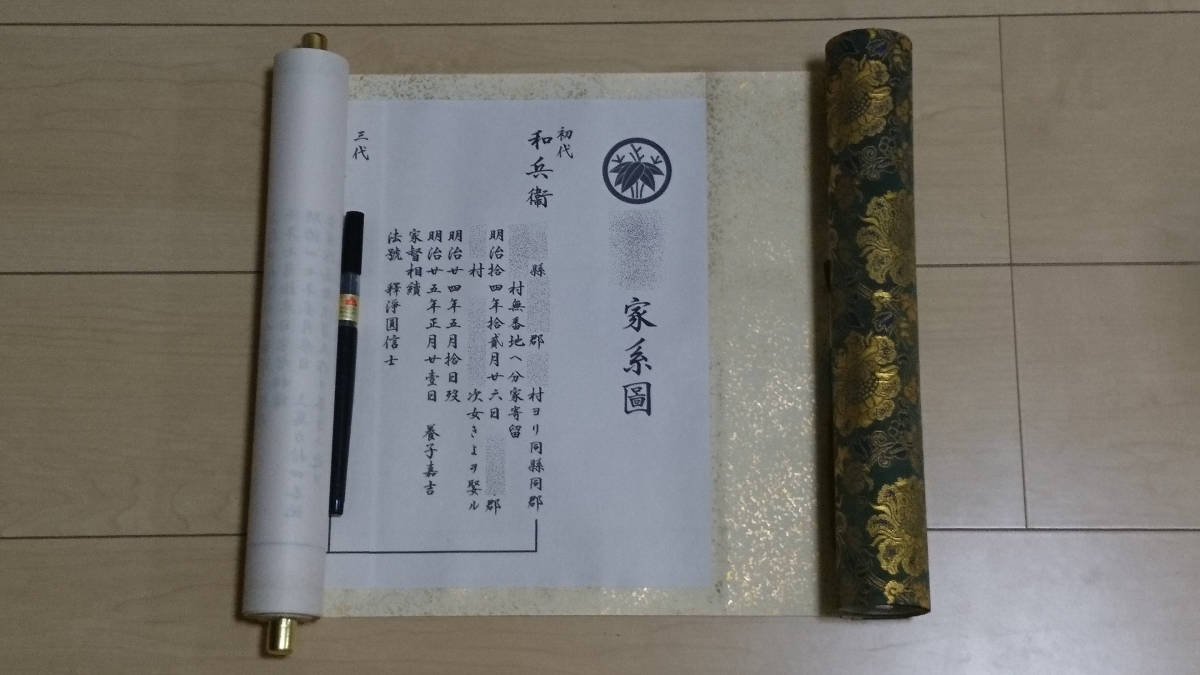 家系圖
初代
和兵衞
縣 郡 村ヨリ同縣同郡
村無番地ヘ分家寄留
明治拾四年拾貳月廿六日 郡
村 次女きよヲ娶ル
明治廿四年五月拾日歿
明治廿五年正月廿壹日 養子嘉吉
家督相續
法號 釋淨圓信士
三代